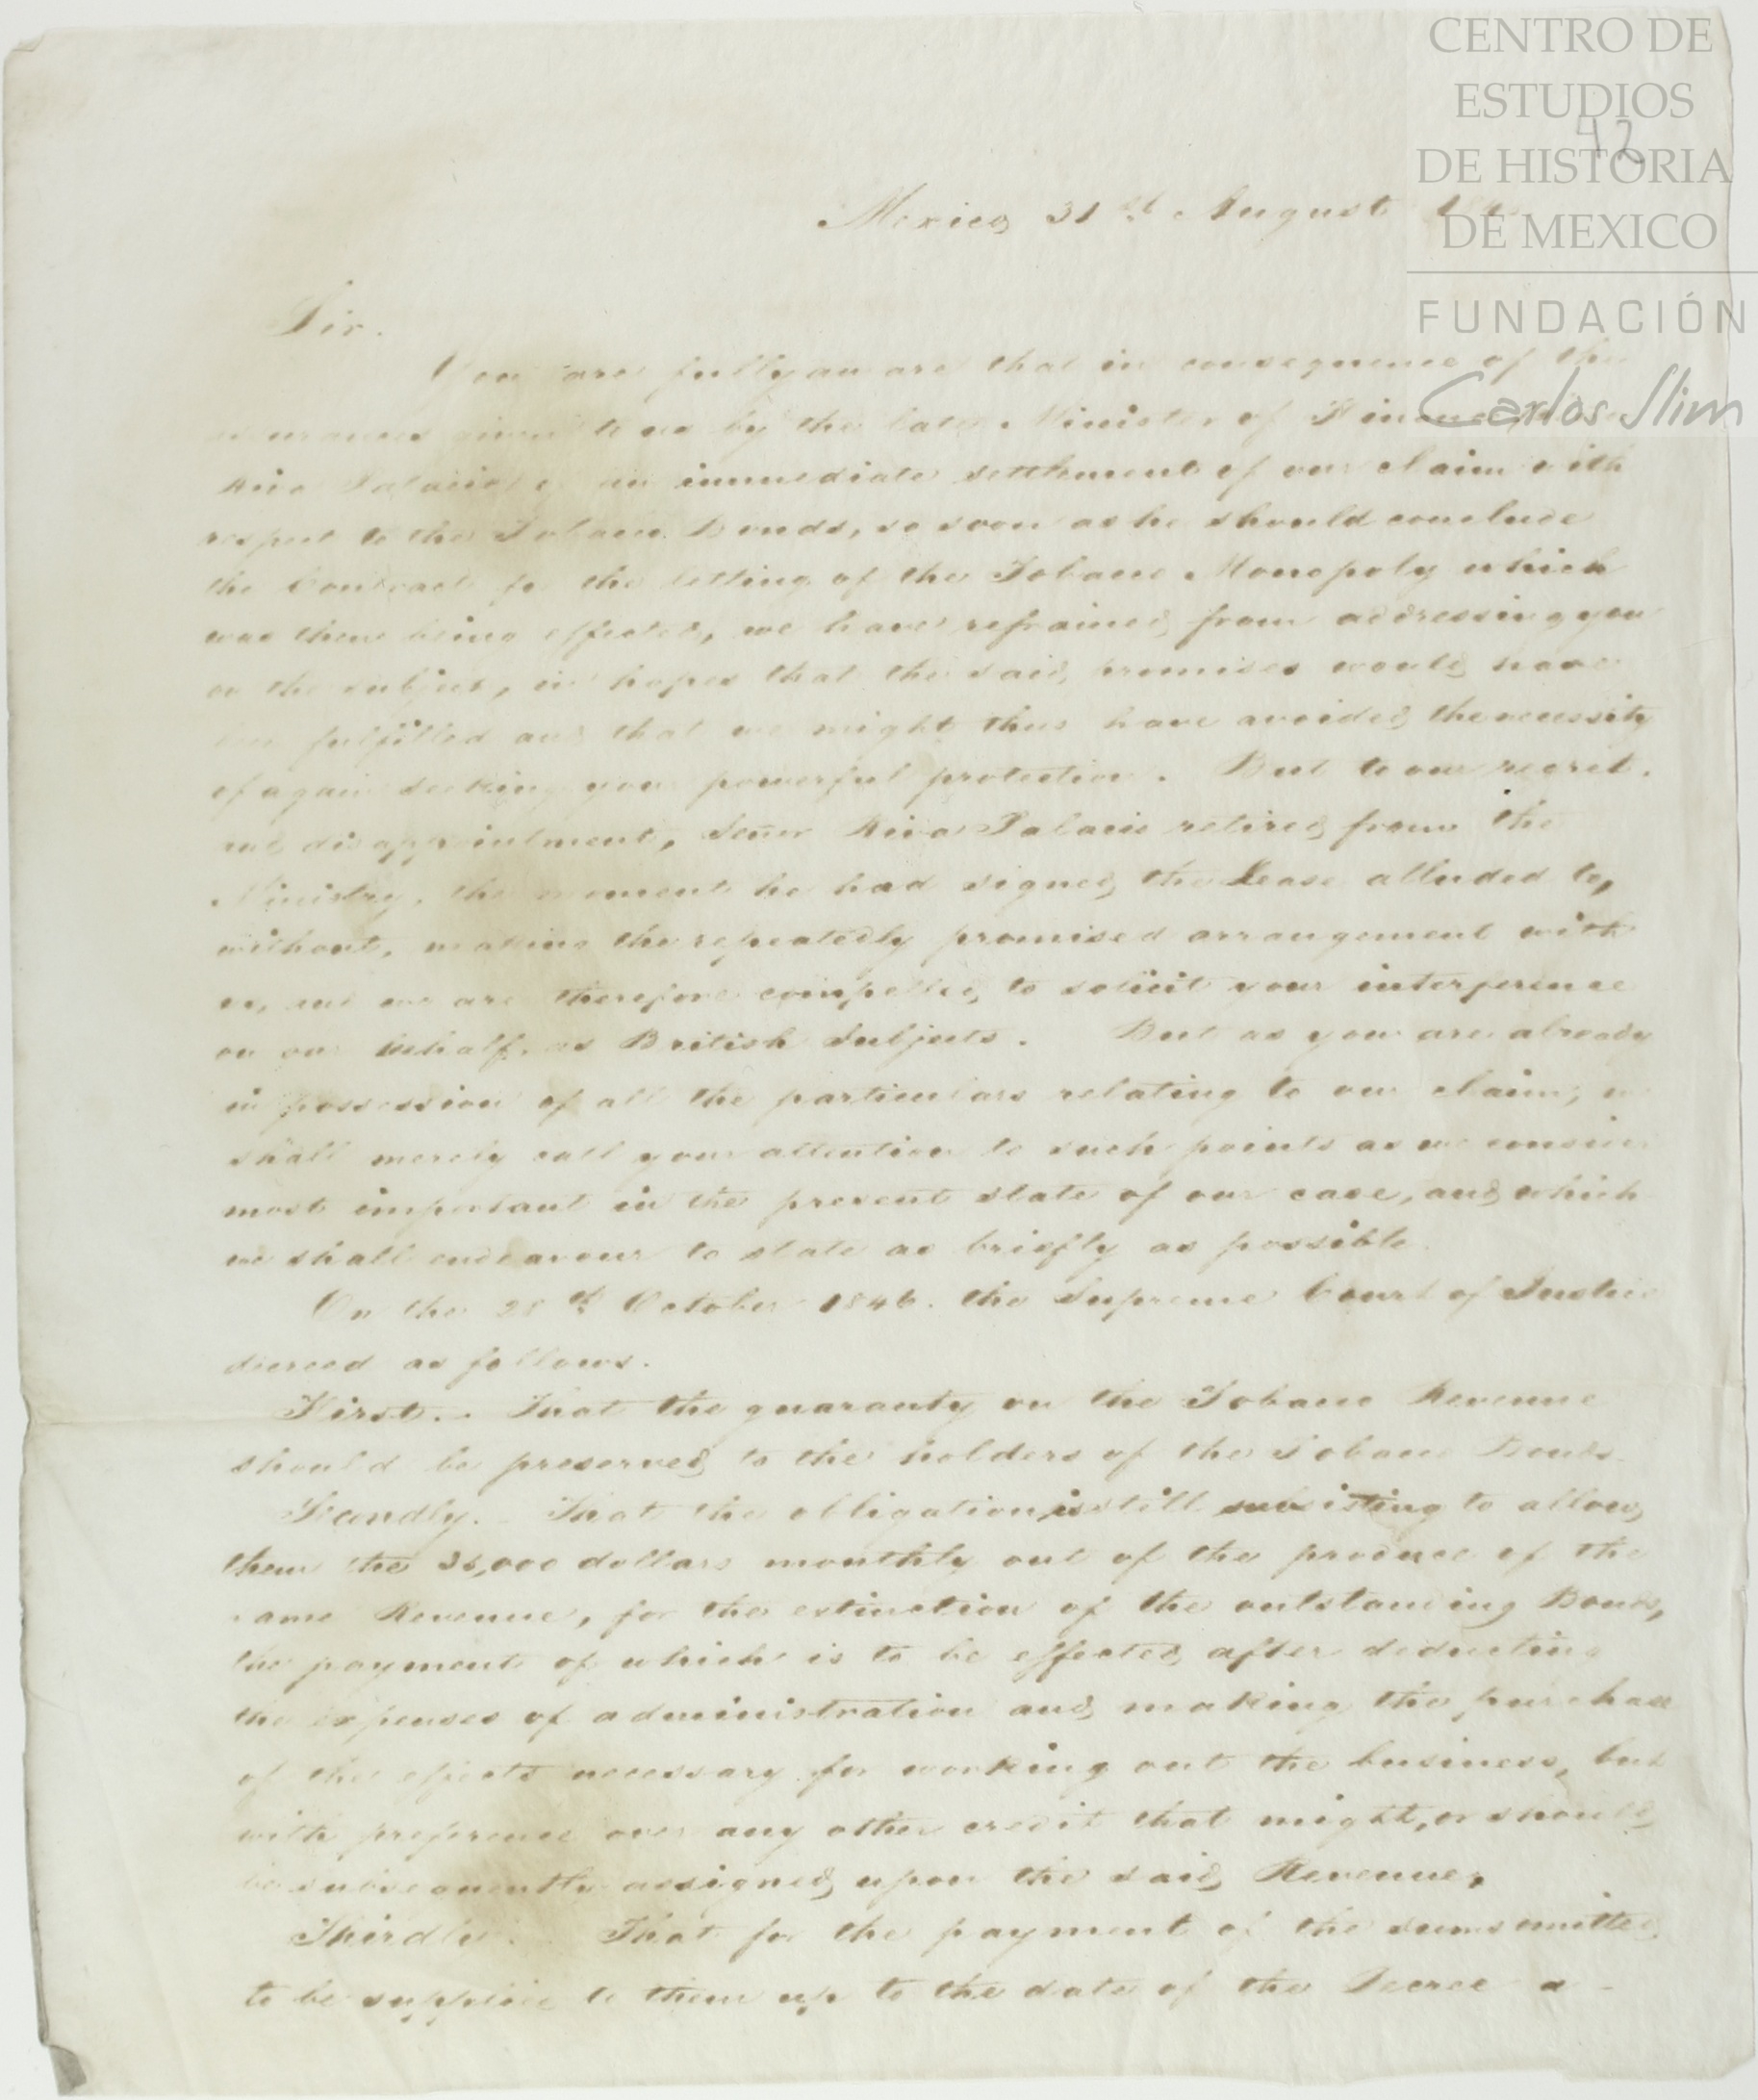 CENTRO DE
ESTUDIOS
DE HISTORIA
DE MEXICO
FUNDACIÓN
Carlos Slim
42
Mexico, 31st August
Sir.
You are fully aware that in consequence of the
assurances given to us by the late Minister of Finance,
Riva Palacio, of an immediate settlement of our claim with
respect to the Tobacco Bonds, so soon as he should conclude
the Contract for the letting of the Tobacco Monopoly which
was then being effected, we have refrained from addressing you
on the subject, in hopes that the said promises would have
been fulfilled and that we might thus have avoided the necessity
of again seeking your powerful protection. But to our regret.
and disappointment, Señor Riva Palacio retired from the
Ministry, the moment he had signed the Lease alluded to,
without, making the repeatedly promised arrangement with
us, and we are therefore compelled to solicit your interference
on our behalf, as British Subjects. But as you are already
in possession of all the particulars relating to our claim, we
shall merely call your attention to such points as we consider
most important in the present state of our case, and which
we shall endeavour to state as briefly as possible.
On the 28th October 1846. the Supreme Court of Justice
decreed as follows.
First. - That the guaranty on the Tobacco Revenue
should be preserved to the holders of the Tobacco Bonds.
Secondly. - That the obligation is still subsisting to allow
them the 26,000 dollars monthly out of the produce of the
same Revenue, for the extinction of the outstanding Bonds,
the payment of which is to be effected after deducting
the expenses of administration and making the purchase
of the effects necessary for working out the business, but
with preference over any other credit that might, or should
be subsequently assigned upon the said Revenue.
Thirdly. That for the payment of the sums omitted
to be supplied to them up to the date of the Decree a-